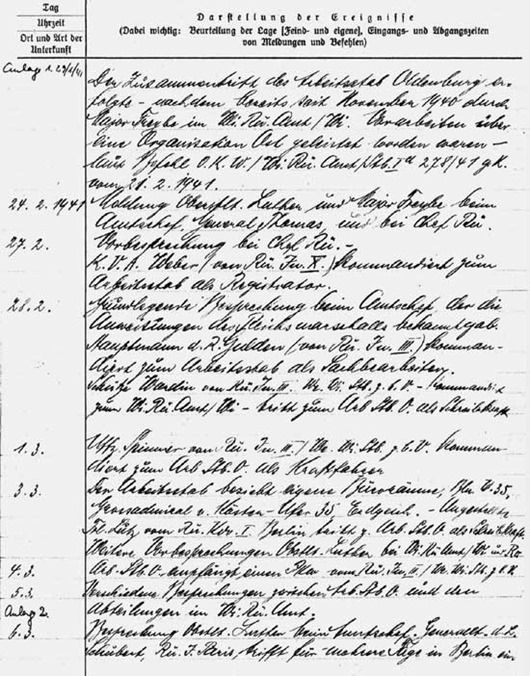 Tag
Uhrzeit
Ort und Art der
Unterkunft
Darstellung der Ereignisse
(Dabei wichtig: Beurteilung der Lage [Feind- und eigene], Eingangs- und Abgangszeiten
von Meldungen und Befehlen)
Anlage 1
Der Zusammentritt des Arbeitsstab Oldenburg er-
folgte – nachdem bereits seit November 1940 durch
Major Freybe im Wi.Rü.Amt/Wi. Vorarbeiten über
eine Organisation Ost geleistet worden waren –
laut Befehl O.K.W./Wi.Rü.Amt/ 278/41 g.K.
vom 21. 2. 1941.
24. 2. 1941 Meldung Oberstlt. Luther und Major Freybe beim
Amtschef, General Thomas, und bei Chef Rü.
27. 2. Vorbesprechung bei Chef Rü. –
K.V.A. Weber (von Rü.In. X.) kommandiert zum
Arbeitsstab als Registrator.
28. 2. Grundlegende Besprechung beim Amtschef, der die
Anweisungen des Reichsmarschalls bekanntgab.
Hauptmann d.R. (von Rü.In. III) komman-
diert zum Arbeitsstab als Sachbearbeiter.
Schütze von Rü.In. III We.Wi.Stb.z.b.V. – kommandiert
zum Wi.Rü.Amt/Wi – tritt zum Arb.Stb.O. als Schreibkraft.
1. 3. Uffz. von Rü.In. III/We.Wi.Stb.z.b.V. komman-
diert zum Arb.Stb.O. als Kraftfahrer
3. 3. Der Arbeitsstab bezieht eigene Büroräume, Bln. W. 35,
Grossadmiral v. Köster-Ufer 35 Erdgesch. – Angestellte
Frl. von Rü.Kdo. I Berlin tritt z. Arb.Stb.O. als Schreibkraft
Weitere Vorbesprechungen Obstlt. Luther bei Wi.Rü.Amt/Wi und Rü
4. 3. Arb.Stb.O. empfängt einen Pkw von Rü.In. III/We.Wi.Stb.z.b.V.
5. 3. Verschiedene Besprechungen zwischen Arb.Stb.O. und den
Abteilungen im Wi.Rü.Amt.
Anlage 2.
6. 3. Besprechung Obstlt. Luther beim Amtschef. Generallt. d.L.
Schubert, Rü.J. Paris, trifft für mehrere Tage in Berlin ein